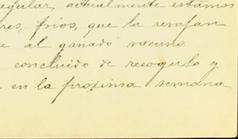 egular, actualmente estamos
res, frios, que la
e al ganado vacuno
concluido de recogerlo y
en la proxima semana